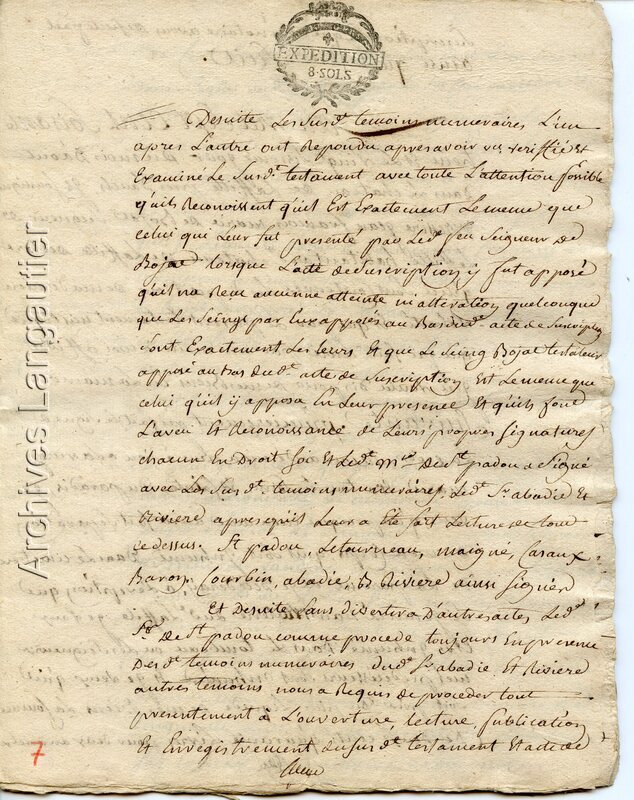 EXPEDITION
8·SOLS
Desuite Les susd. temoins numeraires L'un
apres L'autre ont Repondu apres avoir vu veriffié et
Examiné Le susd. testament avec toute L'attention possible
qu'ils Reconoissent qu'il Est Exactement Le meme que
celui qui Leur fut presenté par Led. feu Seigneur de
Bojat lorsque L'acte de suscription y fut apposé
qu'il na Recu aucune atteinte ni alteration quelconque
que Les Seings par Eux apposés au Bas dud. acte de suscription
sont Exactement Les leurs Et que Le Seing Bojat testateur
apposé au bas dud. acte de suscription Est Le meme que
celui qu'il y apposa En Leur presence Et qu'ils font
L'aveu Et Reconoissance de Leurs propres signatures
chacun En Droit soi Et Led. de St. padou a Signé
avec Les susd. temoins numeraires, Led. Sr. abadie Et
Riviere apres qu'il Leur a Eté fait Lecture de tout
ce dessus. St. padou, Letourneau, maigné, Casaux,
Baron, Courbin, abadie, Riviere ainsi signés
Et Desuite sans divertir a D'autres actes Led.
Sr. De St. padou comme procede toujours En presence
Des d. temoins numeraires dud. Sr. abadie Et Riviere
autres temoins, nous a Requis de proceder tout
presentement à L'ouverture, Lecture, publication
Et Enregistrement du susd. testament Et acte de
7
Archives Langautier